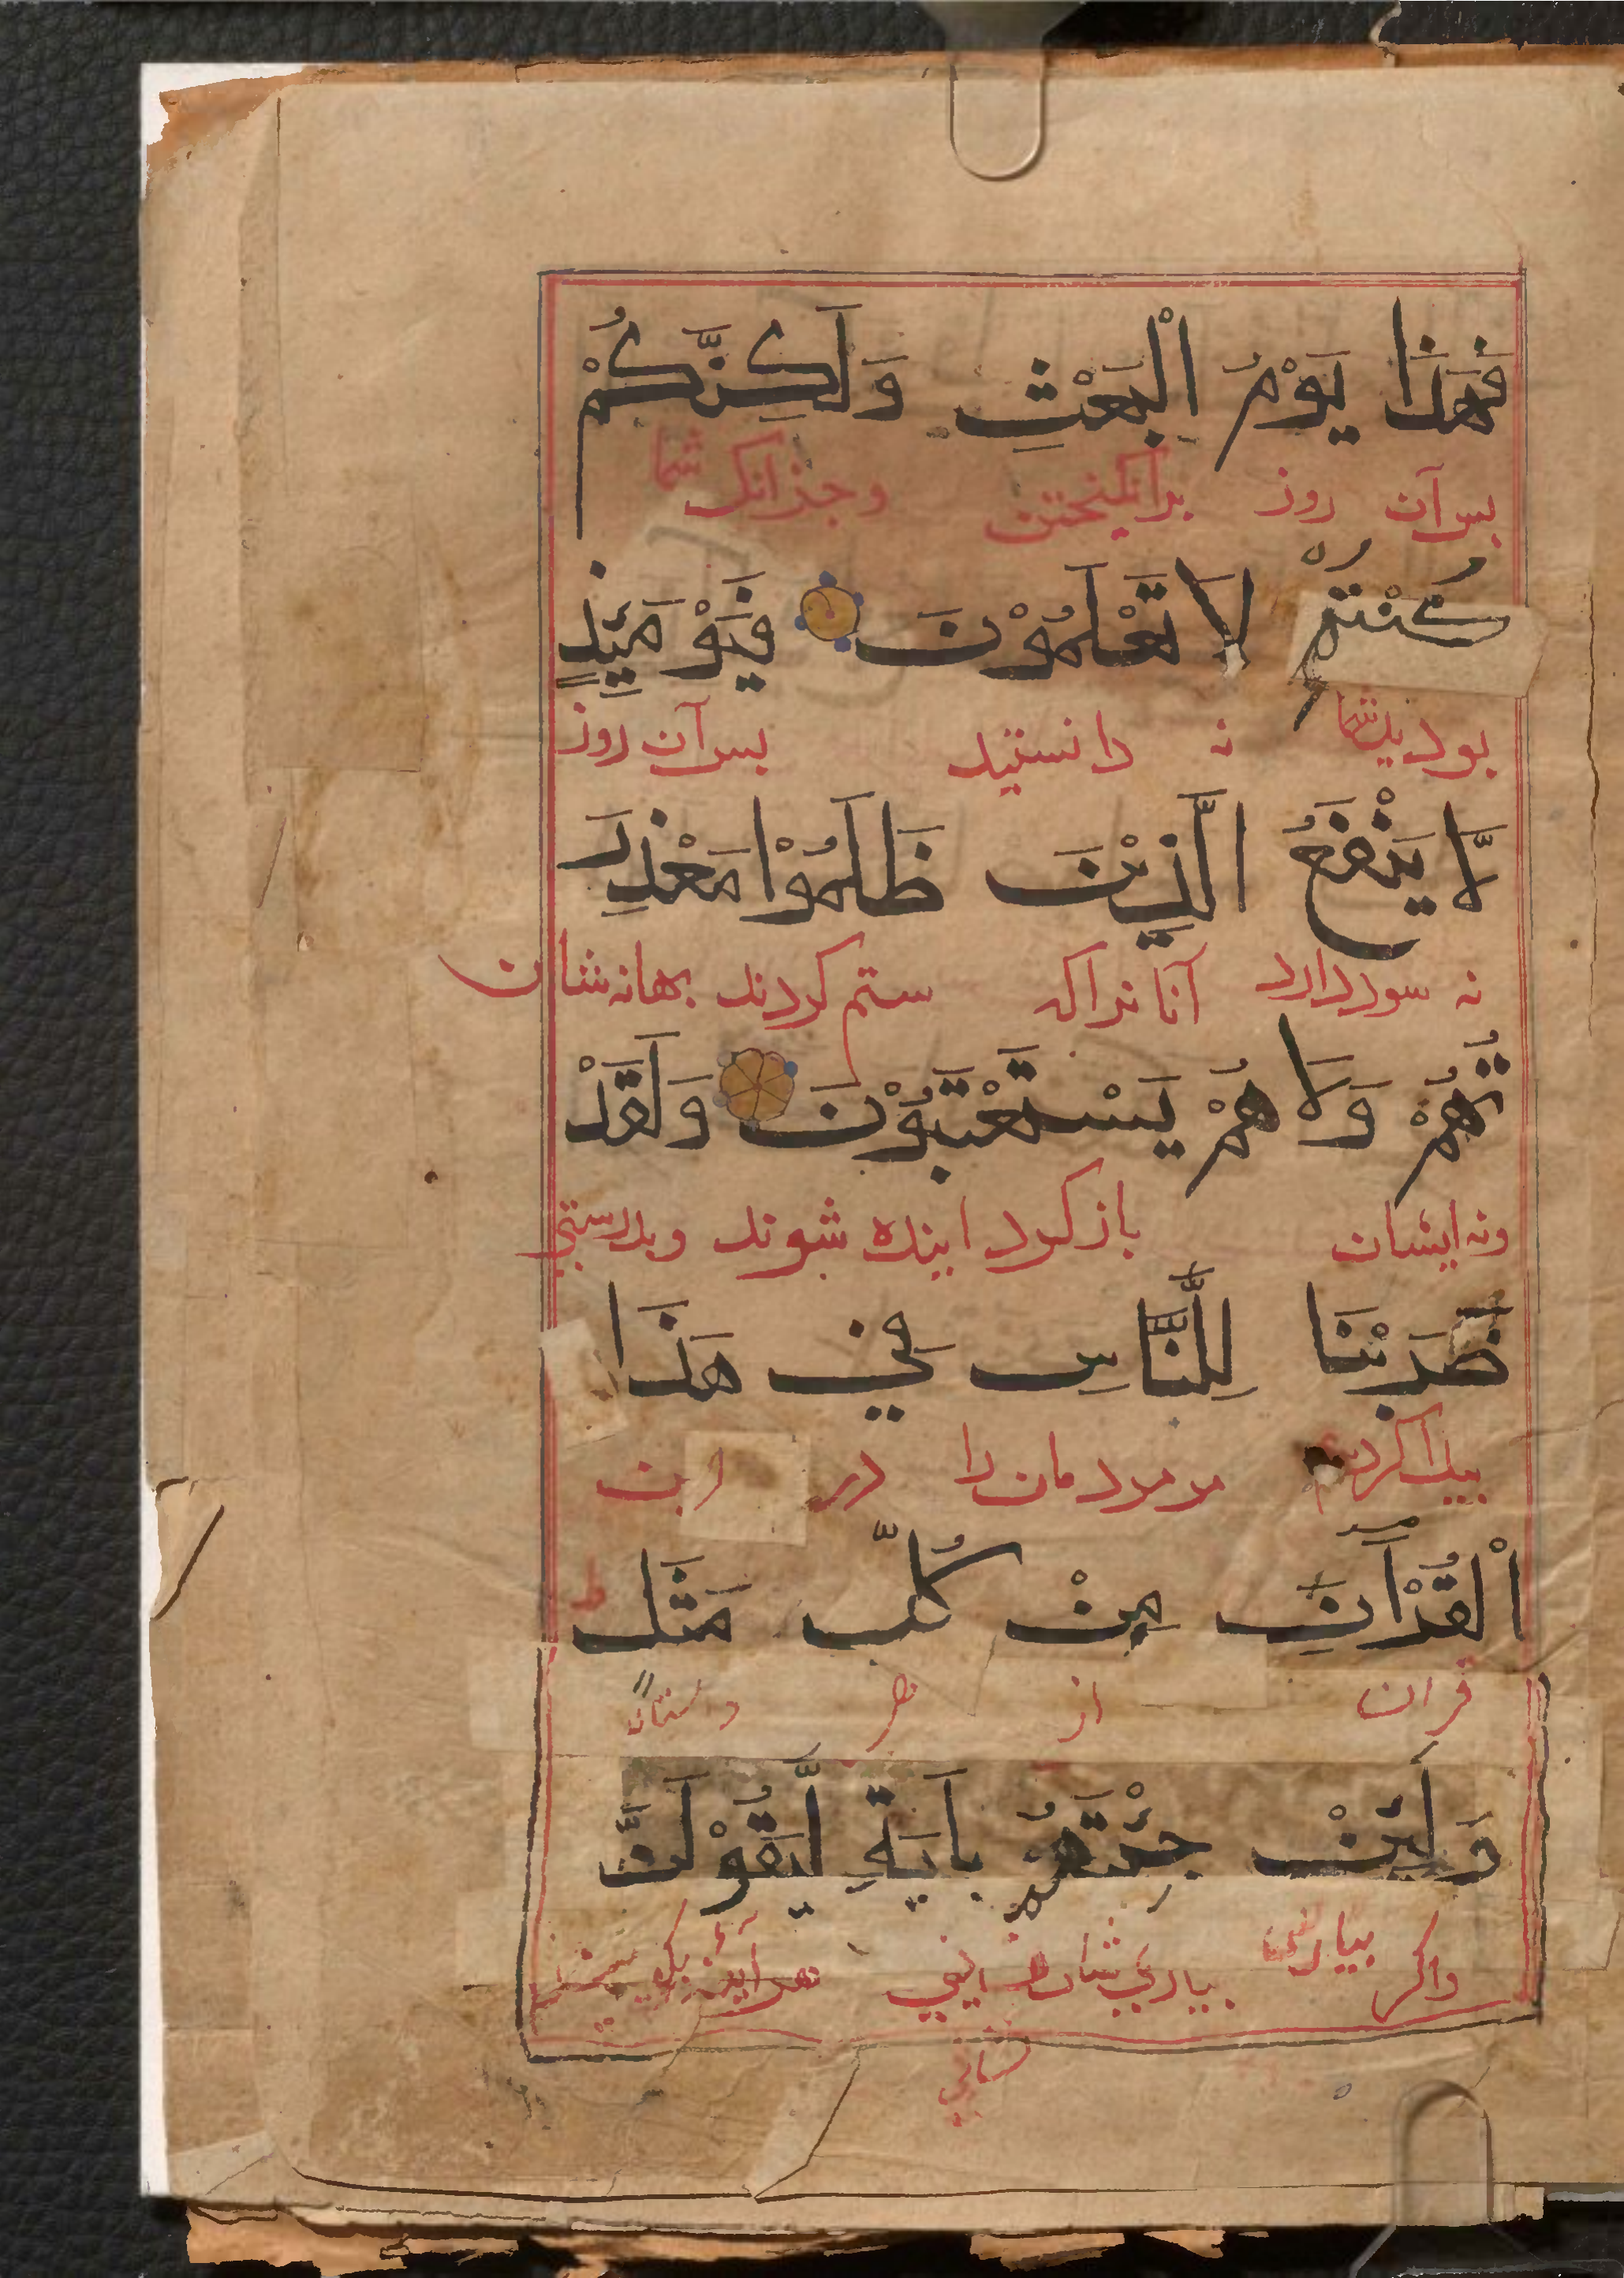 فَهَذَا يَوْمُ الْبَعْثِ وَلَكِنَّكُمْ
بس آن روز برانكيختن وجز انك شما
كُنْتُمْ لَا تَعْلَمُوْنَ فَيَوْمَئِذٍ
بوديد شما نه دانستيد بس آن روز
لَّا يَنْفَعُ الَّذِيْنَ ظَلَمُوْا مَعْذِرَ
نه سود دارد آنانراكه ستم كردند بهانه شان
تُهُمْ وَلَا هُمْ يَسْتَعْتَبُوْنَ وَلَقَدْ
ونه ايشان باز كردانيده شوند وبدرستي
ضَرَبْنَا لِلنَّاسِ فِيْ هَذَا
بيدا كرديم مر مردمان را در اين
الْقُرْآنِ مِنْ كُلِّ مَثَلٍ ط
قران از هر داستان
وَلَئِنْ جِئْتَهُمْ بِآيَةٍ لَّيَقُوْلَنَّ
واكر بياري شان هر آينه
نشاني